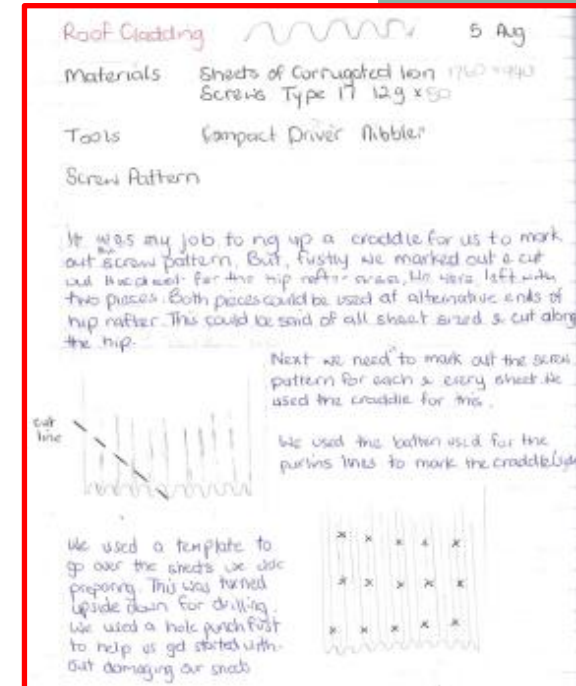 Roof Cladding 5 Aug
Materials Sheets of Corrugated Iron 1760 × 940
Screws Type 17 12g × 50
Tools Compact Driver Nibbler
Screw Pattern
It was my job to rig up a craddle for us to mark
out screw pattern. But, firstly we marked out & cut
out the sheet for the hip rafter area. We were left with
two pieces. Both pieces could be used at alternative ends of
hip rafter. This could be said of all sheet sized & cut along
the hip.
Next we need to mark out the screw
pattern for each & every sheet. We
used the craddle for this.
cut
line
We used the batten used for the
purlins lines to mark the craddle
We used a template to
go over the sheets we
preparing. This was turned
upside down for drilling.
We used a hole punch first
to help us get started with-
out damaging our sheets